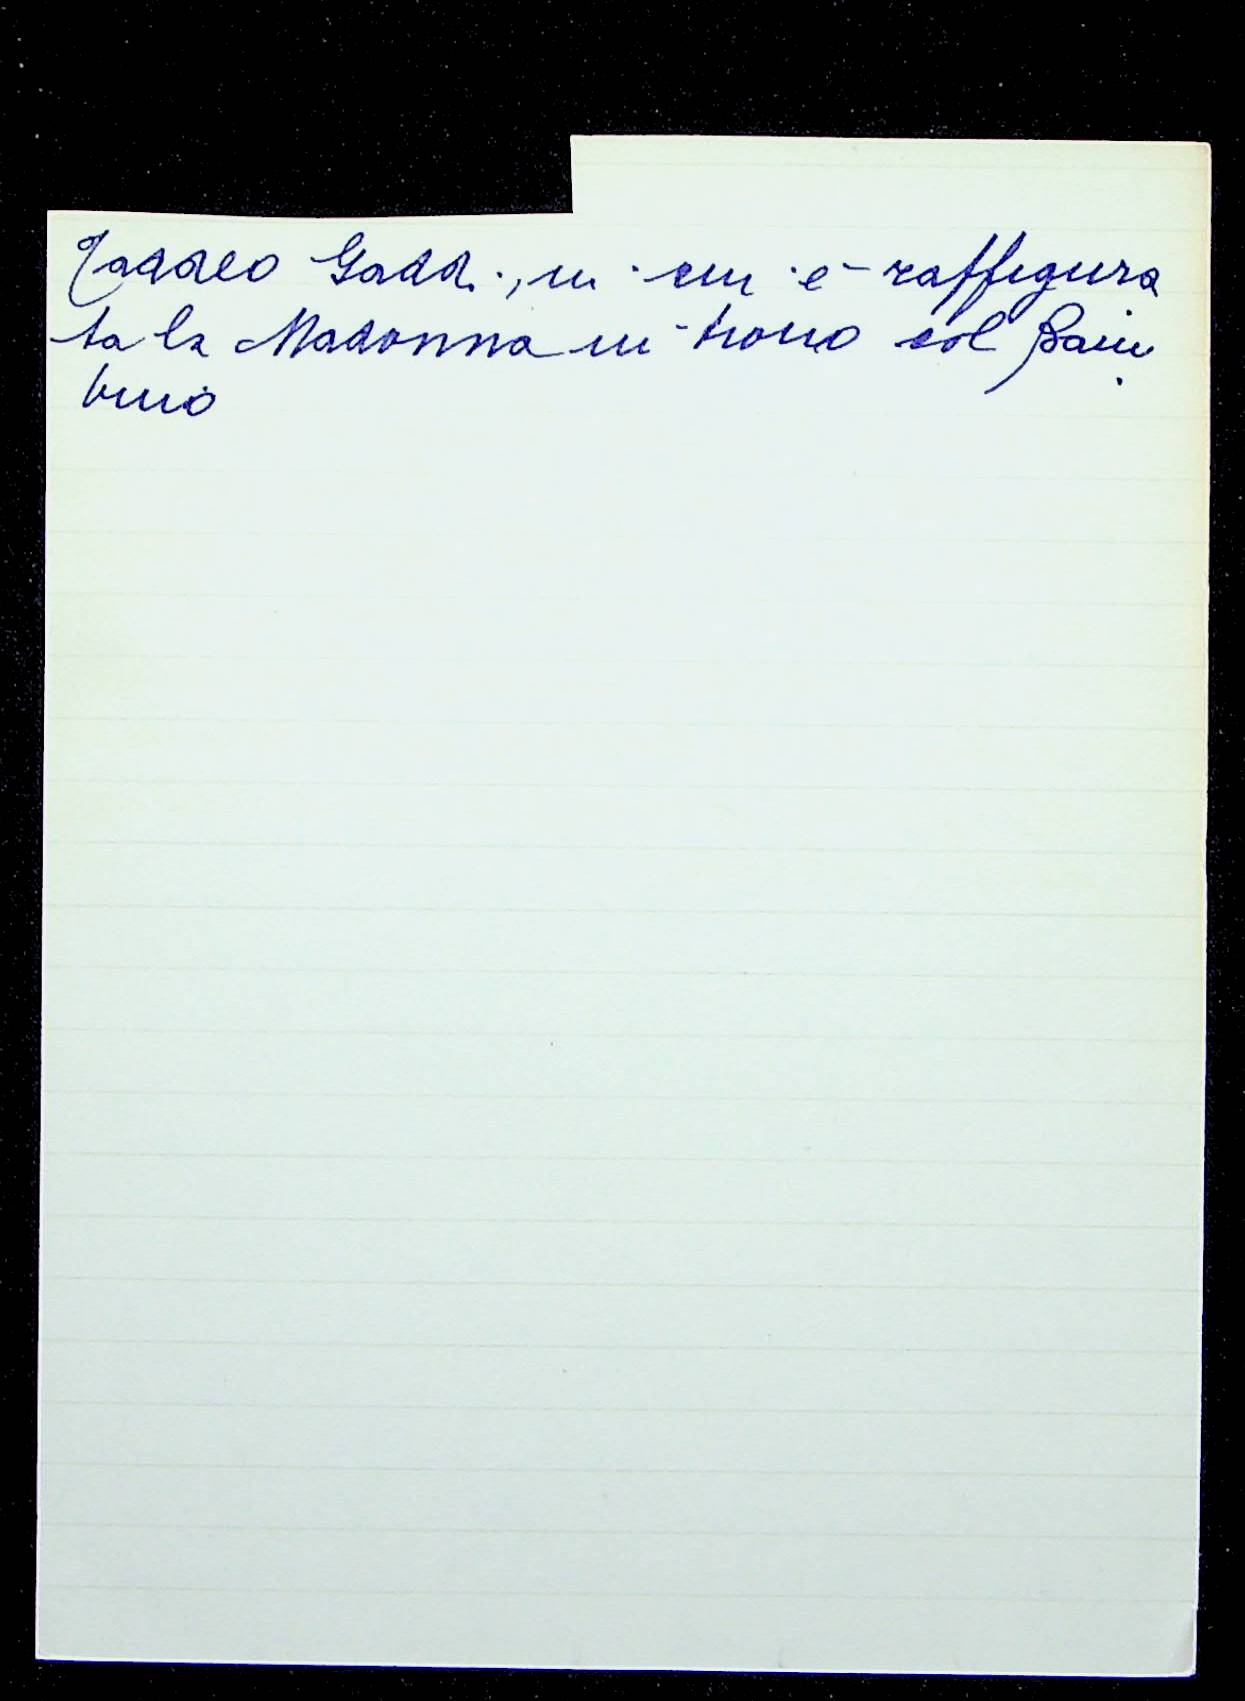 Taddeo Gaddi, in cui è raffigura
ta la Madonna in trono col Bam
bino